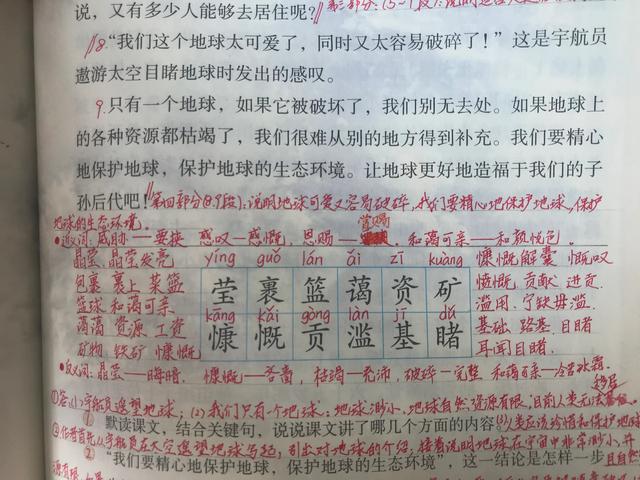 说，又有多少人能够去居住呢？
8.“我们这个地球太可爱了，同时又太容易破碎了！”这是宇航员
遨游太空目睹地球时发出的感叹。
9.只有一个地球，如果它被破坏了，我们别无去处。如果地球上
的各种资源都枯竭了，我们很难从别的地方得到补充。我们要精心
地保护地球，保护地球的生态环境。让地球更好地造福于我们的子
孙后代吧！第四部分(8.9段):说明地球可爱又容易破碎,我们要精心地保护地球,保护
地球的生态环境。
近义词:威胁——要挟 感叹—感慨, 恩赐—赏赐 和蔼可亲—和颜悦色。
晶莹 晶莹发亮 yíng guǒ lán ǎi zī kuàng 慷慨解囊 慨叹
包裹 裹上 菜篮 莹 裹 篮 蔼 资 矿 愤慨 贡献 进贡
篮球 和蔼可亲 kāng kǎi gòng làn jī dǔ 滥用 宁缺毋滥
蔼蔼 资源 工资 慷 慨 贡 滥 基 睹 基础 路基 目睹
矿物 铁矿 慷慨 耳闻目睹.
反义词:晶莹—晦暗. 慷慨—吝啬, 枯竭—充沛, 破碎—完整 和蔼可亲—冷若冰霜.
①答:(1)宇航员遥望地球;(2)我们只有一个地球:地球渺小,地球自然资源有限,目前人类无法移居
① 默读课文，结合关键句，说说课文讲了哪几个方面的内容。(3)人类应该珍惜和保护地球
从宇航员在太空遥望地球写起,引出对地球的介绍,接着说明地球在宇宙中非常渺小,并
② “我们要精心地保护地球，保护地球的生态环境”，这一结论是怎样一步